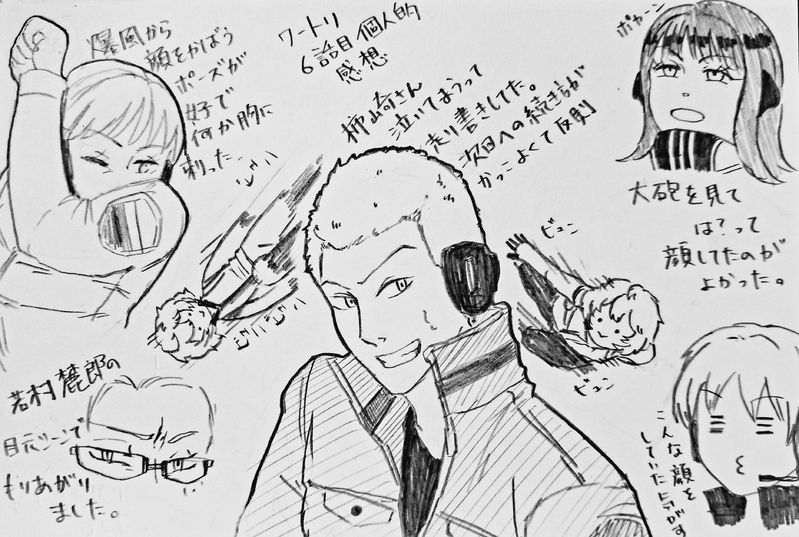 ワートリ
6話目個人的
感想
爆風から
顔をかばう
ポーズが
好で
何か胸に
刺った…
柿崎さん
泣いてまうって
走り書きしてた。
次回への続き方が
かっこよくて反則
ポカーン
大砲を見て
は？って
顔してたのが
よかった。
ビュン
ビュン
若村麓郎の
目元シーンで
もりあがり
ました。
こんな顔を
していた気がす